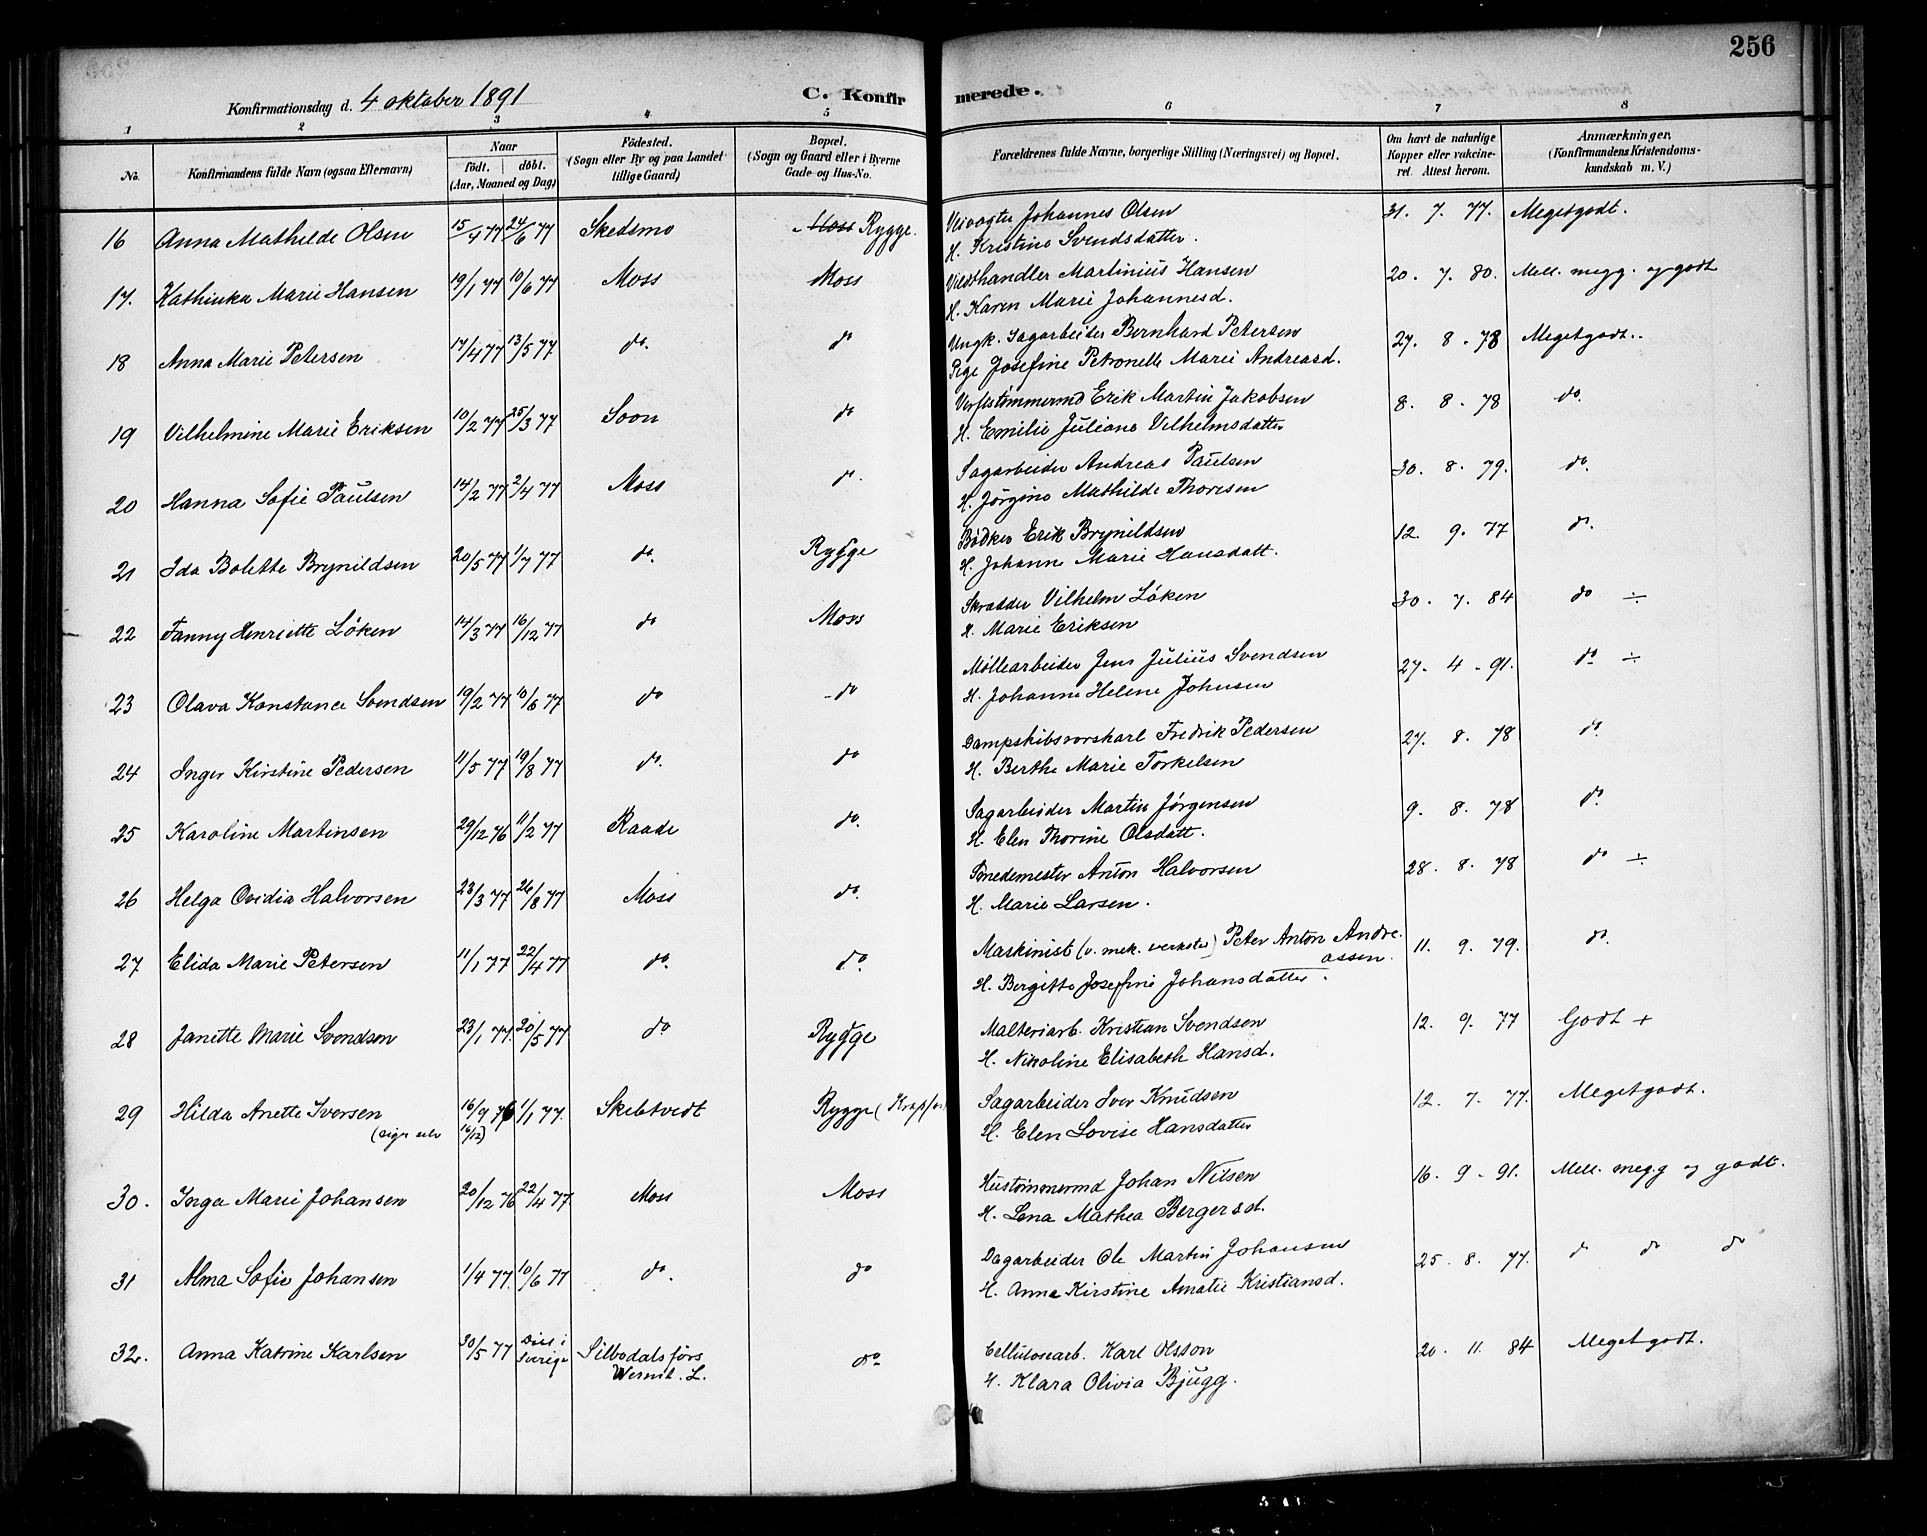 256
Konfirmationsdag d. 4 oktober 1891
C. Konfirmerede.
1 2 3 4 5 6 7 8
No. Konfirmandens fulde Navn (ogsaa Efternavn) Naar födt. döbt. (Aar, Maaned og Dag) Födested. (Sogn eller By og paa Landet tillige Gaard) Bopæl. (Sogn og Gaard eller i Byerne Gade og Hus-No. Forældrenes fulde Navne, borgerlige Stilling (Næringsvei) og Bopæl. Om havt de naturlige Kopper eller vakcineret. Attest herom. Anmærkninger, (Konfirmandens Kristendomskundskab m. V.)
16 Anna Mathilde Olsen 15/4 77 24/6 77 Skedsmo Moss Rygge. Veivogter Johannes Olsen 31. 7. 77. Megetgodt.
H. Kristine Svendsdatter.
17. Kathinka Marie Hansen 19/1 77 10/6 77 Moss Moss Vildthandler Martinius Hansen 20. 7. 80. Mell. megg. og godt
H. Karen Marie Johannesd.
18 Anna Marie Petersen 17/4 77 13/5 77 do. do Ungk. Sagarbeider Bernhard Petersen 27. 8. 78 Megetgodt.
Pige Josefine Petronelle Marie Andreasd.
19 Vilhelmine Marie Eriksen 10/2 77 25/3 77 Soon do Verftstømmermd Erik Martin Jakobsen 8. 8. 78 do.
H. Emilie Juliane Vilhelmsdatter
20 Hanna Sofie Paulsen 14/2 77 2/4 77 Moss do. Sagarbeider Andreas Paulsen 30. 8. 79. do.
H. Jørgine Mathilde Thoresen
21 Ida Bolette Brynildsen 20/5 77 1/7 77 do. Rygge Bødker Erik Brynildsen 12. 9. 77 do.
H. Johanne Marie Hansdatt.
22 Fanny Henriette Löken 14/3 77 16/12 77 do Moss Skrædder Vilhelm Löken 30. 7. 84 do ÷
H. Marie Eriksen
23 Olava Konstance Svendsen 19/2 77 10/6 77 do do Møllearbeider Jens Julius Svendsen 27. 4. 91. do ÷
H. Johanne Helene Johnsen
24 Inger Kirstine Pedersen 11/5 77 19/8 77 do. do Dampskibsvorskarl Fredrik Pedersen 27. 8. 78 do.
H. Berthe Marie Torkelsen
25 Karoline Martinsen 29/12 76 11/2 77 Raade do. Sagarbeider Martin Jørgensen 9. 8. 78 do.
H. Elen Thorine Olsdatt.
26 Helga Ovidia Halvorsen 23/3 77 26/8 77 Moss do. Smedemester Anton Halvorsen 28. 8. 78 do ÷
H. Marie Larsen.
27 Elida Marie Petersen 11/1 77 22/4 77 do. do. Maskinist (v. mek. verksted) Peter Anton Andreassen. 11. 9. 79. do.
H. Bergitte Josefine Johansdatter.
28 Janette Marie Svendsen 23/1 77. 20/5 77 do Rygge Malteriarb. Kristian Svendsen 12. 9. 77 Godt +
H. Nikoline Elisabeth Hansd.
29 Hilda Anette Iversen 16/9 76 1/1 77. Skibtvedt Rygge (Krapfos) Sagarbeider Iver Knudsen 12. 7. 77. Megetgodt.
(siger selv 16/12) H. Elen Lovise Hansdatter
30. Inga Marie Johansen 20/12 76 22/4 77. Moss Moss Hustømmermd Johan Nilsen 16. 9. 91. Mell. meg.g og godt.
H. Lena Mathea Bergersd.
31 Alma Sofie Johansen 1/4 77. 10/6 77 do. do Dagarbeider Ole Martin Johansen 25. 8. 77. do do do
H. Anna Kirstine Amalie Kristiansd.
32. Anna Katrine Karlsen 30/5 77 Diss. i Sverige Silbodalsfors do Cellulosearb. Karl Olsson 20. 11. 84 Megetgodt.
Wermt. L. H. Klara Olivia Bjugg.